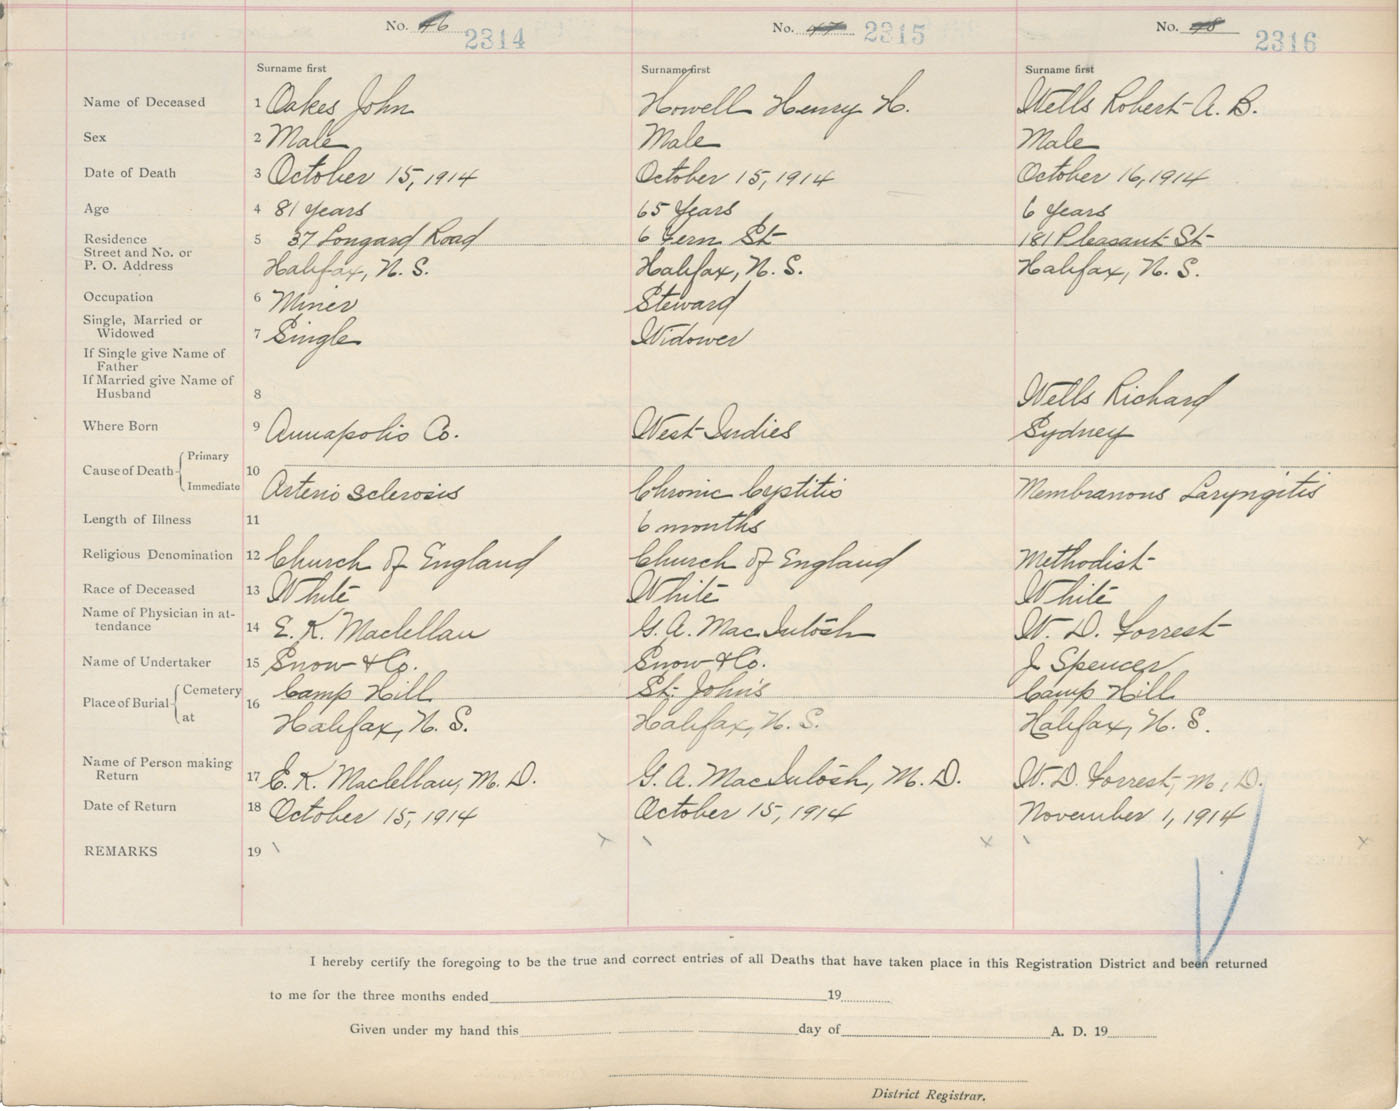 No. 46 2314 No. 47 2315 No. 48 2316
Surname first Surname first Surname first
Name of Deceased 1 Oakes John Howell Henry H. Wells Robert A. B.
Sex 2 Male Male Male
Date of Death 3 October 15, 1914 October 15, 1914 October 16, 1914
Age 4 81 years 65 Years 6 Years
Residence 5 37 Longard Road 6 Fern St 181 Pleasant St
Street and No. or
P. O. Address Halifax, N. S. Halifax, N. S. Halifax, N. S.
Occupation 6 Miner Steward
Single, Married or
Widowed 7 Single Widower
If Single give Name of
Father
If Married give Name of
Husband 8 Wells Richard
Where Born 9 Annapolis Co. West Indies Sydney
Cause of Death Primary 10
Immediate Arterio sclerosis Chronic Cystitis Membranous Laryngitis
Length of Illness 11 6 months
Religious Denomination 12 Church of England Church of England Methodist
Race of Deceased 13 White White White
Name of Physician in at-
tendance 14 E. K. Maclellan G. A. MacIntosh W. D. Forrest
Name of Undertaker 15 Snow & Co. Snow & Co. J Spencer
Place of Burial Cemetery 16 Camp Hill St. John's Camp Hill
at Halifax, N. S. Halifax, N. S. Halifax, N. S.
Name of Person making
Return 17 E. K. Maclellan, M. D. G. A. MacIntosh, M. D. W. D. Forrest, M. D.
Date of Return 18 October 15, 1914 October 15, 1914 November 1, 1914
REMARKS 19
I hereby certify the foregoing to be the true and correct entries of all Deaths that have taken place in this Registration District and been returned
to me for the three months ended 19
Given under my hand this day of A. D. 19
District Registrar.